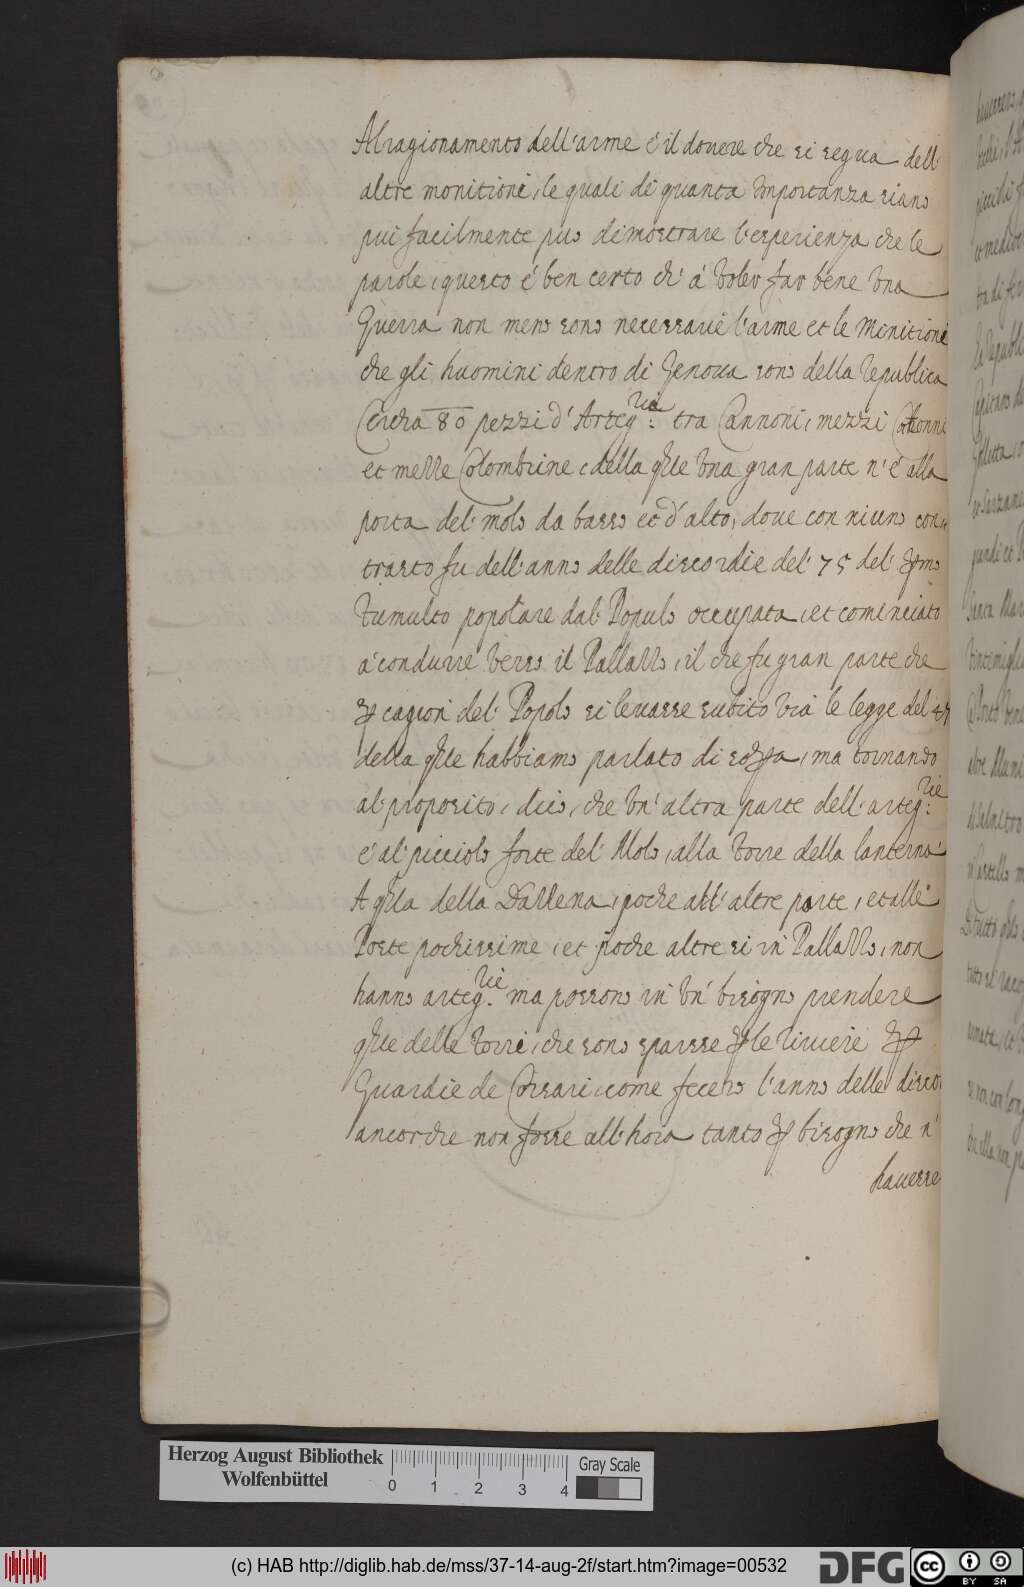 Al ragionamento dell'arme é il douere che si segua dell'
altre monitioni, le quali di quanta Importanza siano
piu facilmente puo dimostrare l'esperienza che le
parole, questo é ben certo ch' á voler far bene una
Guerra non meno sono necessarie l'arme et le Monitioni
che gli huomini dentro di Genoua sono della Republica
Circha 80 pezzi d'Arteg.rie tra Cannoni, mezzi Cannoni
et mezze Colombrine, della qle una gran parte n'é alla
porta del molo da basso et d'alto, doue con niuno con-
trasto fu dell'anno delle discordie del 75 del pmo
Tumulto popolare dal Populo occupata, et cominciato
á condurre verso il Pallazzo, il che fu gran parte che
p cagion del Popolo si leuasse subito via le legge del 47
della qle habbiamo parlato di sopa, ma tornando
al proposito, dico, che un'altra parte dell'arteg.rie
é al picciolo forte del Molo, alla torre della lanterna
A qla della Darsena, poche all'altre porte, et alle
Porte pochissime, et poche altre si in Pallazzo, non
hanno arteg.rie ma possono in un bisogno prendere
qle delle torri, che sono sparse p le riuiere p
Guardie de Corsari, come fecero l'anno delle disco
ancorche non fosse all'hora tanto p bisogno che n'
hauesse
Herzog August Bibliothek
Wolfenbüttel
0 1 2 3 4
Gray Scale
(c) HAB http://diglib.hab.de/mss/37-14-aug-2f/start.htm?image=00532
DFG
cc BY SA